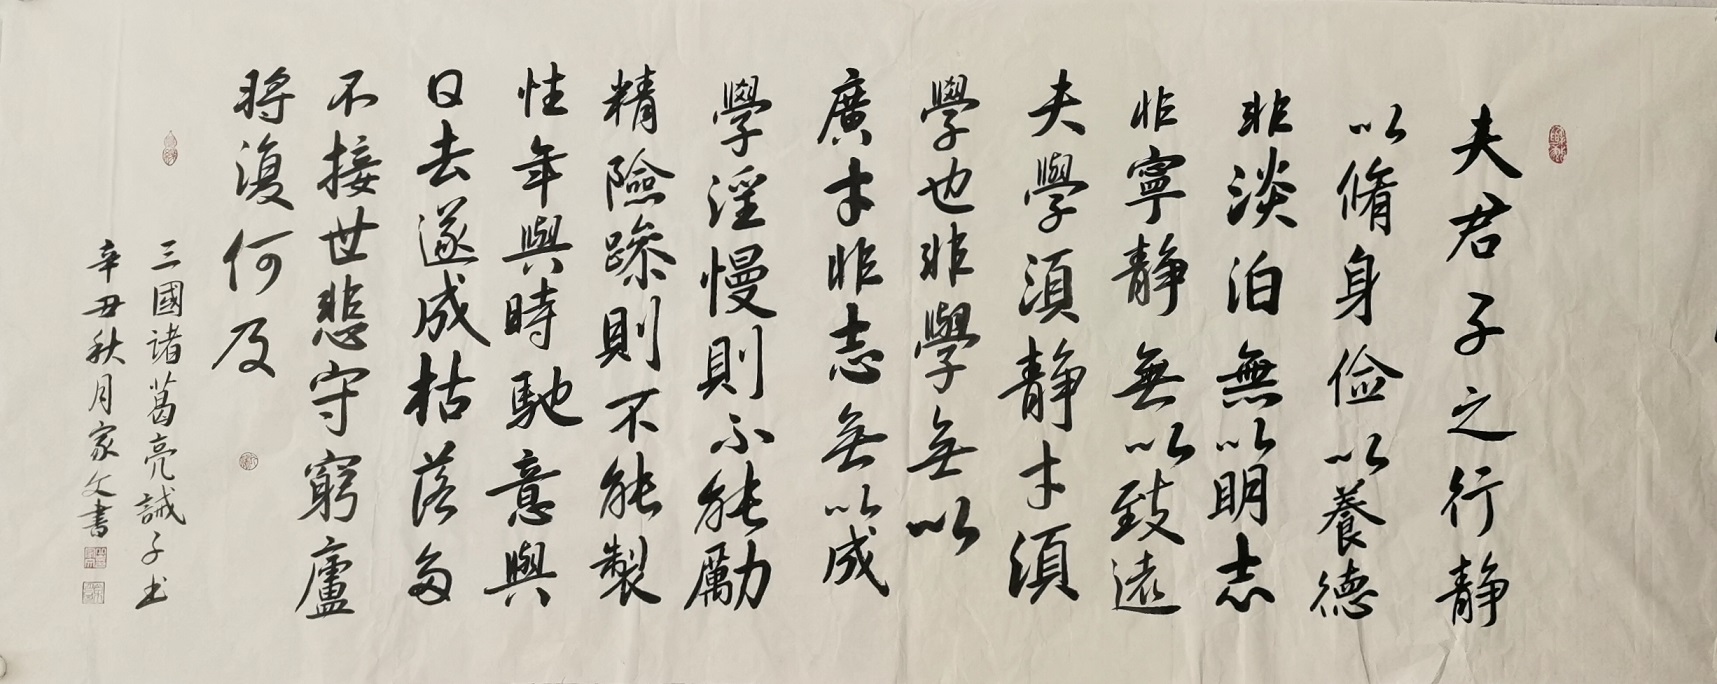 夫君子之行静
以脩身俭以養德
非淡泊無以明志
非寧静無以致遠
夫學須静才須
學也非學無以
廣才非志無以成
學淫慢則不能勵
精險躁則不能製
性年與時馳意與
日去遂成枯落多
不接世悲守窮廬
将復何及
三國诸葛亮誡子书
辛丑秋月家文書